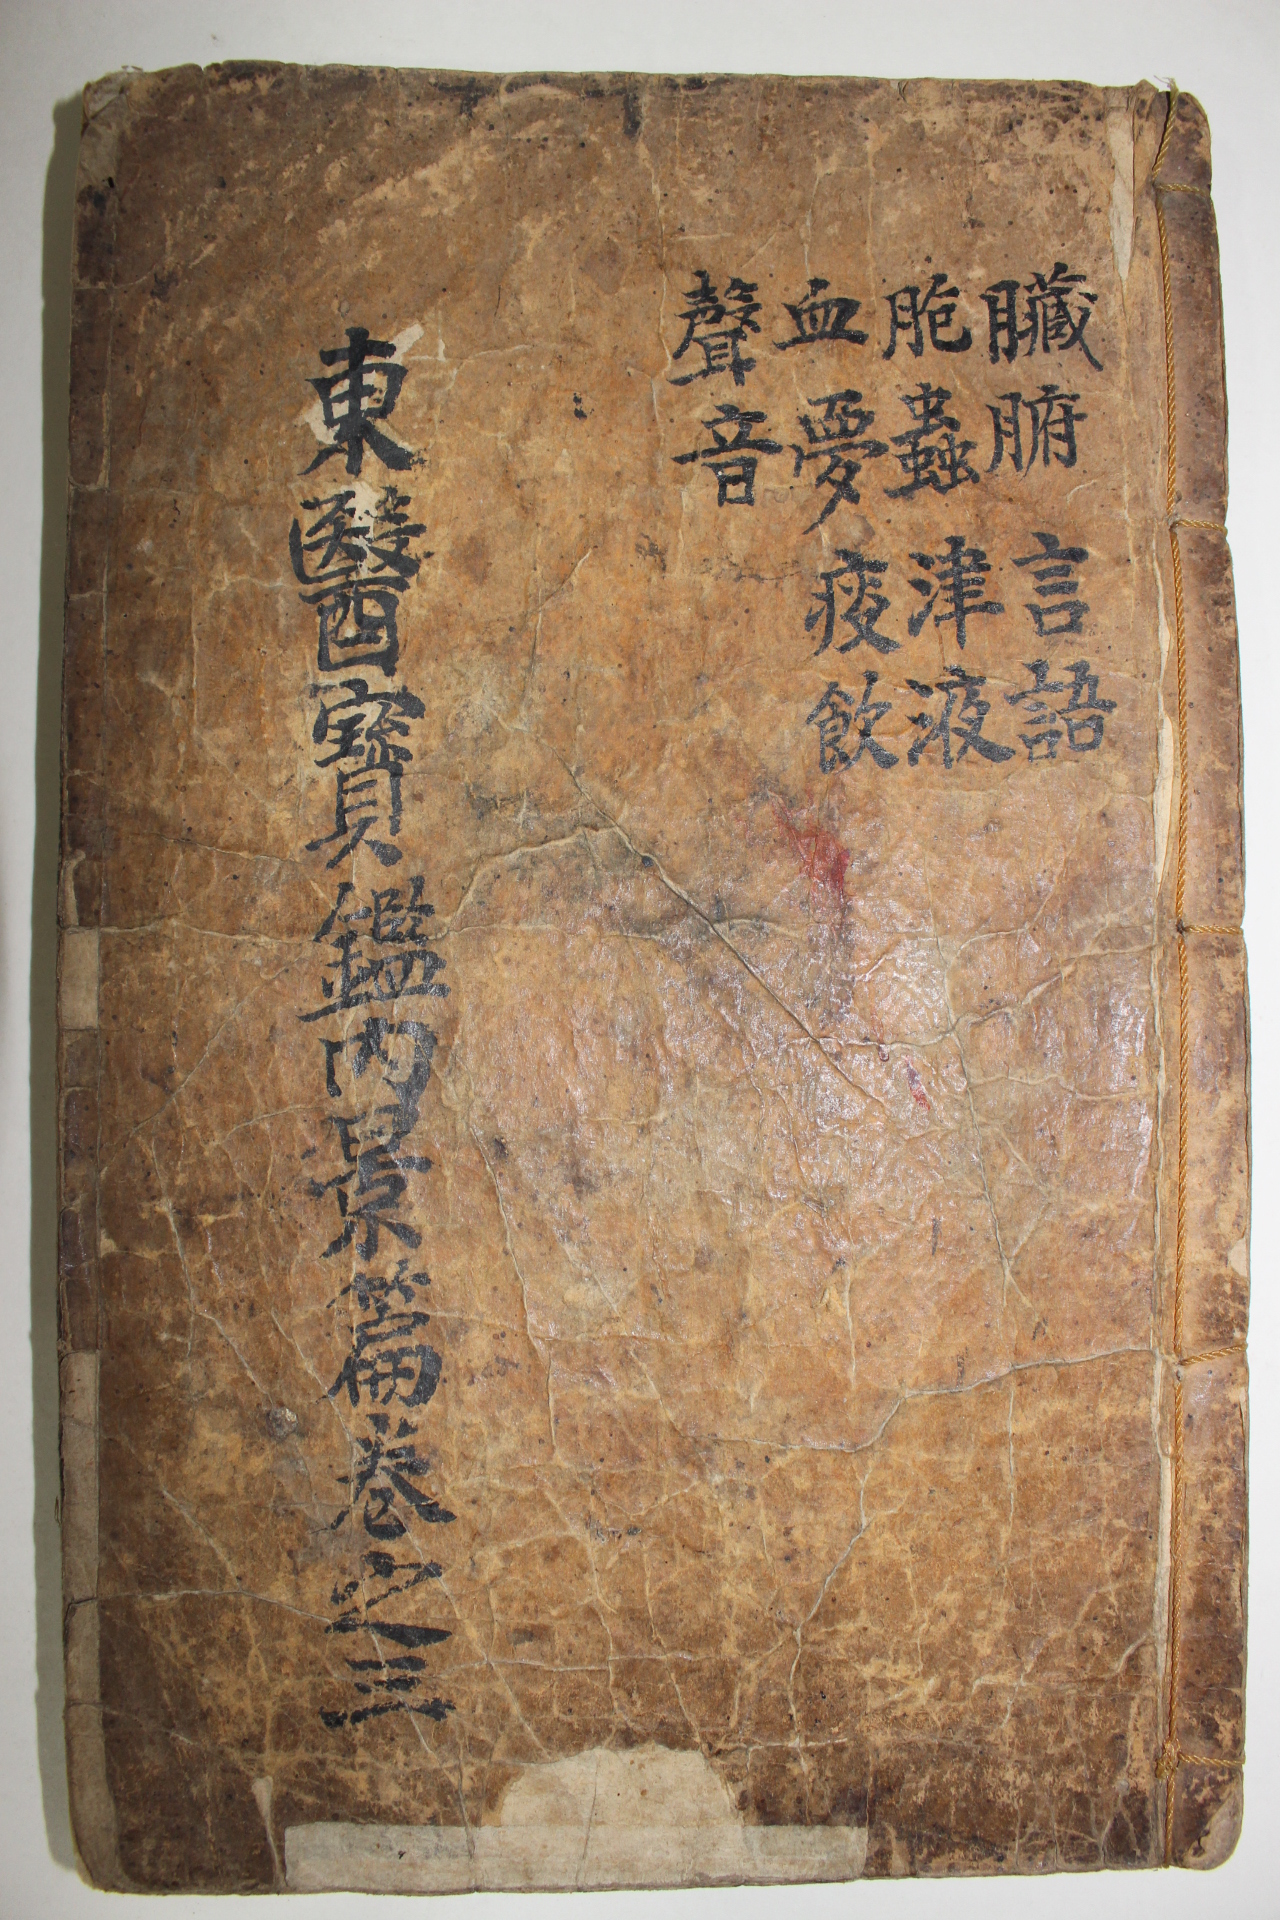 臟腑 言語
胞蟲 津液
血夢 痰飮
聲音
東醫寶鑑内景篇卷之三